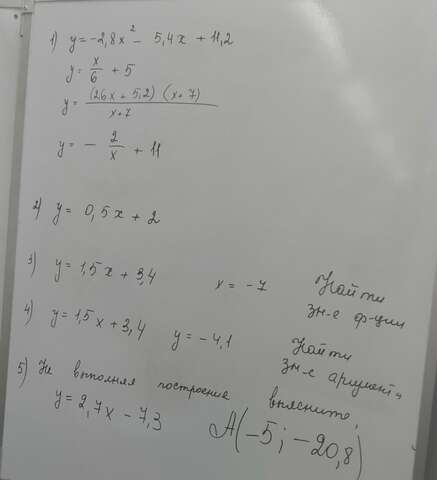 1) y = -2,8x² - 5,4x + 11,2
y = x/6 + 5
y = (26x + 5,2) (x + 7) / x + 7
y = - 2/x + 11
2) y = 0,5x + 2
3) y = 1,5x + 3,4 x = -7 Найти зн-е ф-ции
4) y = 1,5x + 3,4 y = -4,1 Найти зн-е аргумент
5) Не выполняя построение, выясните,
y = 2,7x - 7,3 A(-5; -20,8)